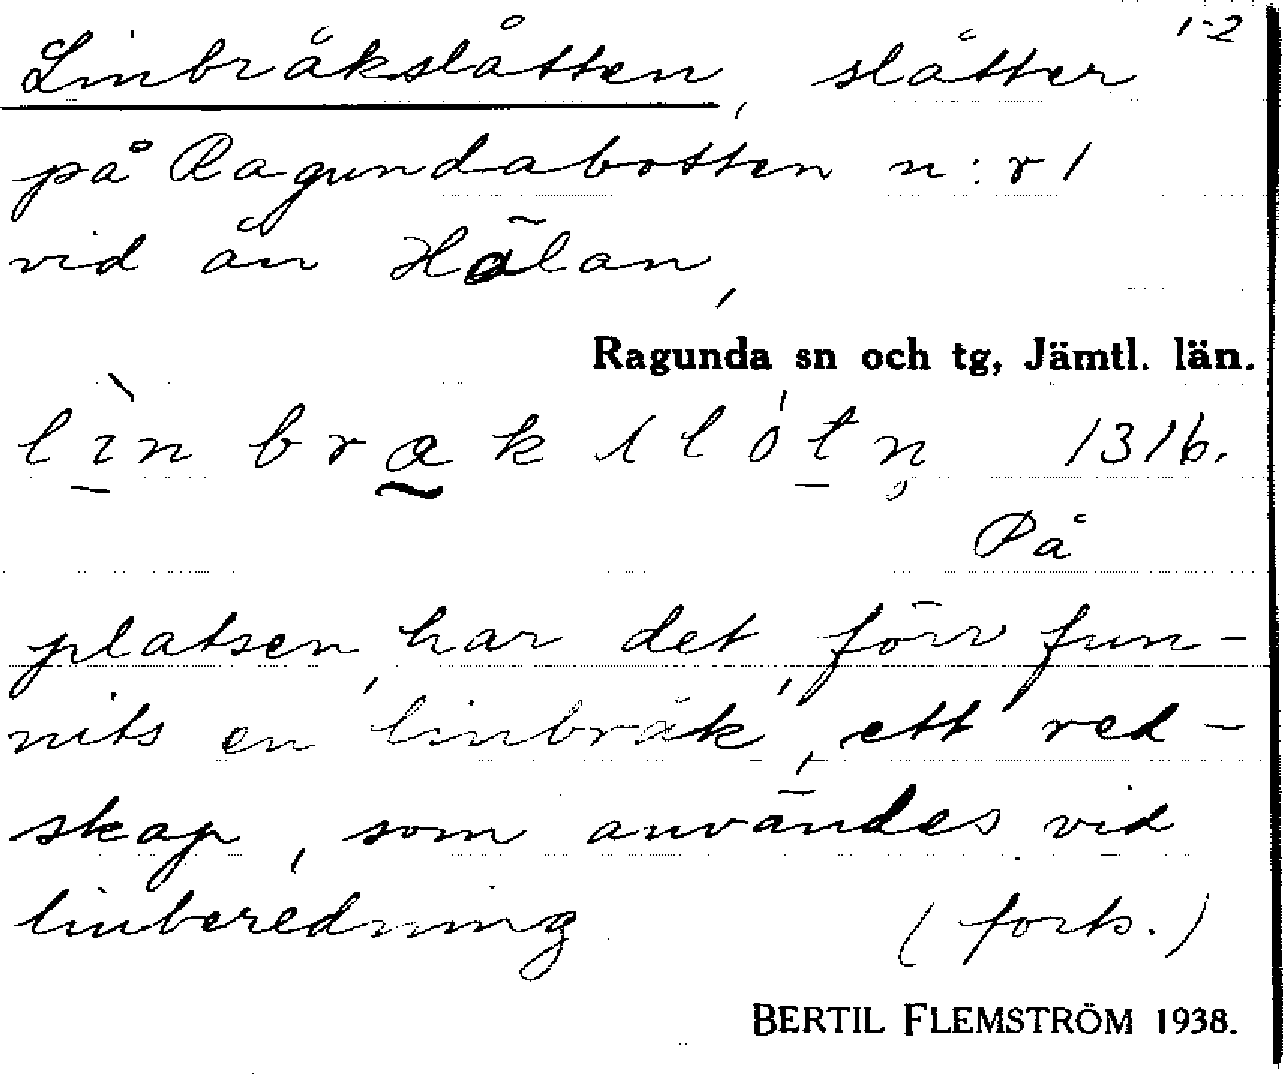 1-2
Linbråkslåtten, slåtter
på Ragundabotten n:r 1
vid ån Hälan,
Ragunda sn och tg, Jämtl. län.
1316.
På
platsen har det förr fun-
nits en linbråk, ett red-
skap, som användes vid
linberedning (forts.)
BERTIL FLEMSTRÖM 1938.